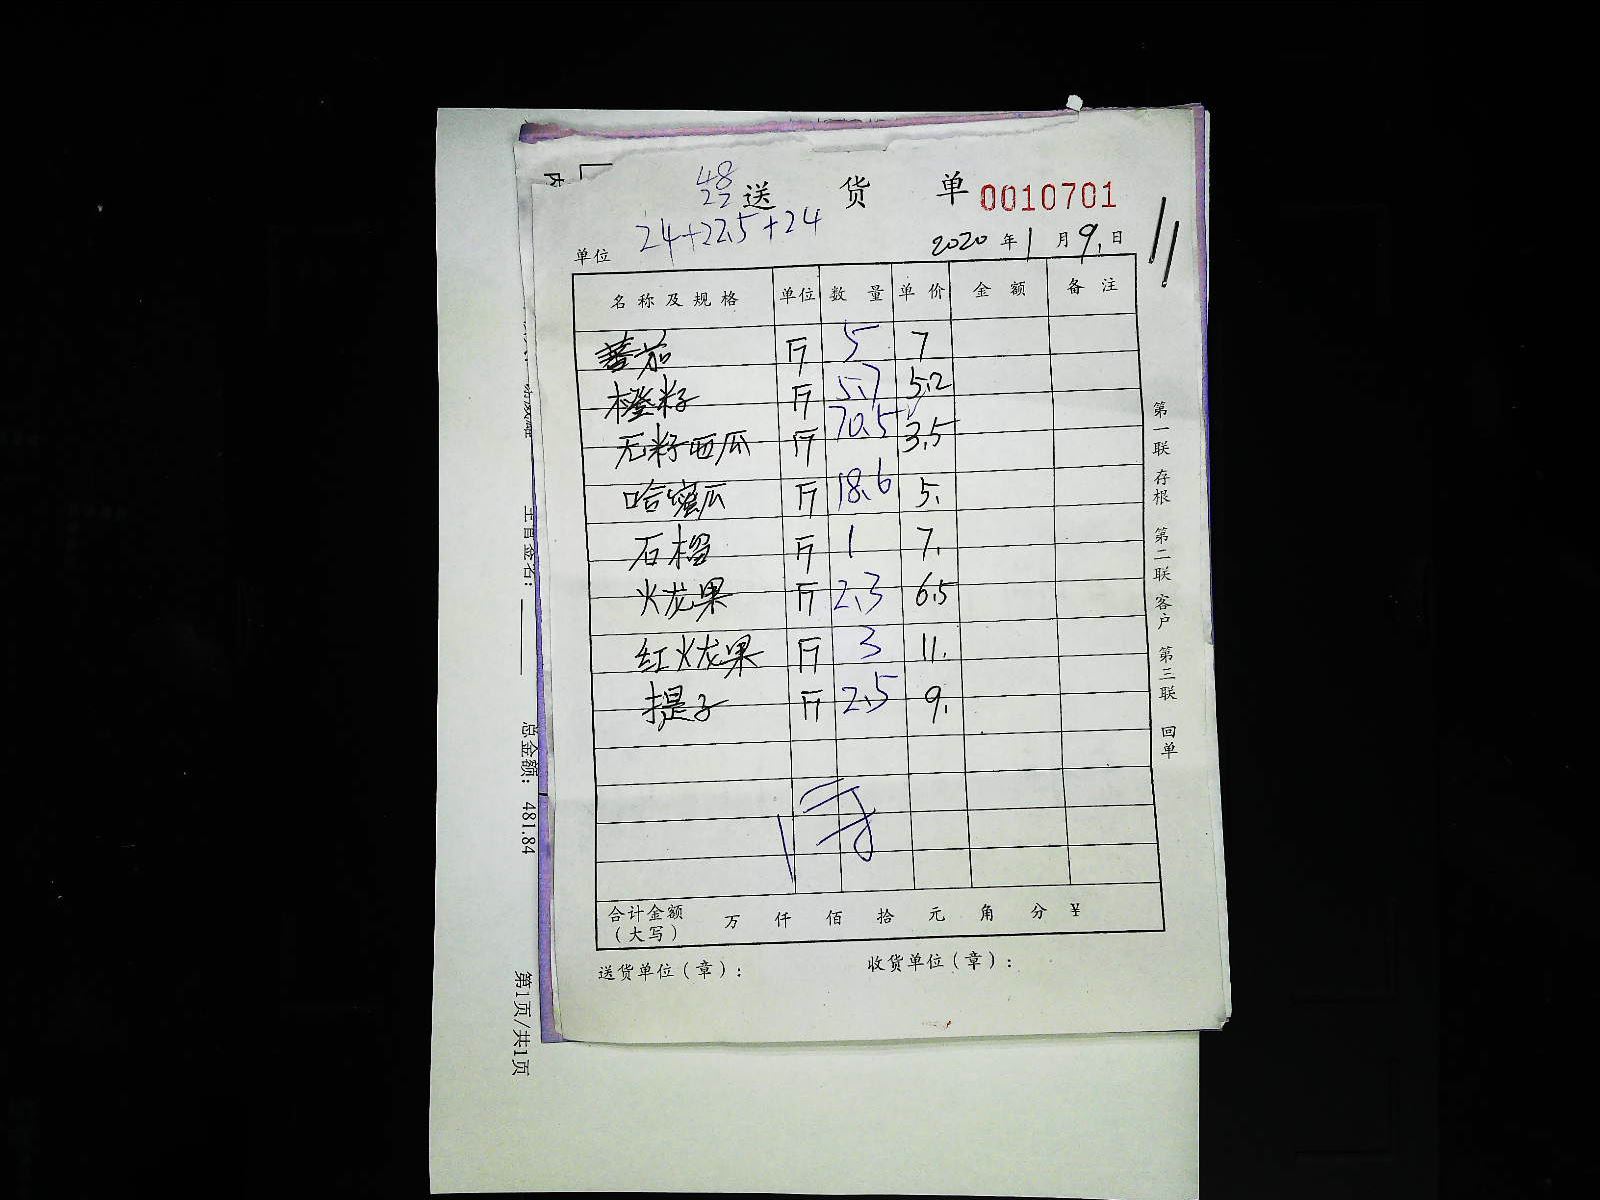 48
22
送 货 单 0010701
24+22.5+24
单位
2020 年 1 月 9. 日
名称及规格 单位 数 量 单 价 金 额 备 注
蕃茄 斤 5 7
橙籽 斤 5.7 5.2
无籽西瓜 斤 70.5 3.5
哈蜜瓜 斤 18.6 5.
石榴 斤 1 7.
火龙果 斤 2.3 6.5
红火龙果 斤 3 11.
提子 斤 2.5 9.
合计金额
(大写) 万 仟 佰 拾 元 角 分 ¥
送货单位(章): 收货单位(章):
第一联 存根 第二联 客户 第三联 回单
主管签名:
总金额: 481.84
第1页/共1页